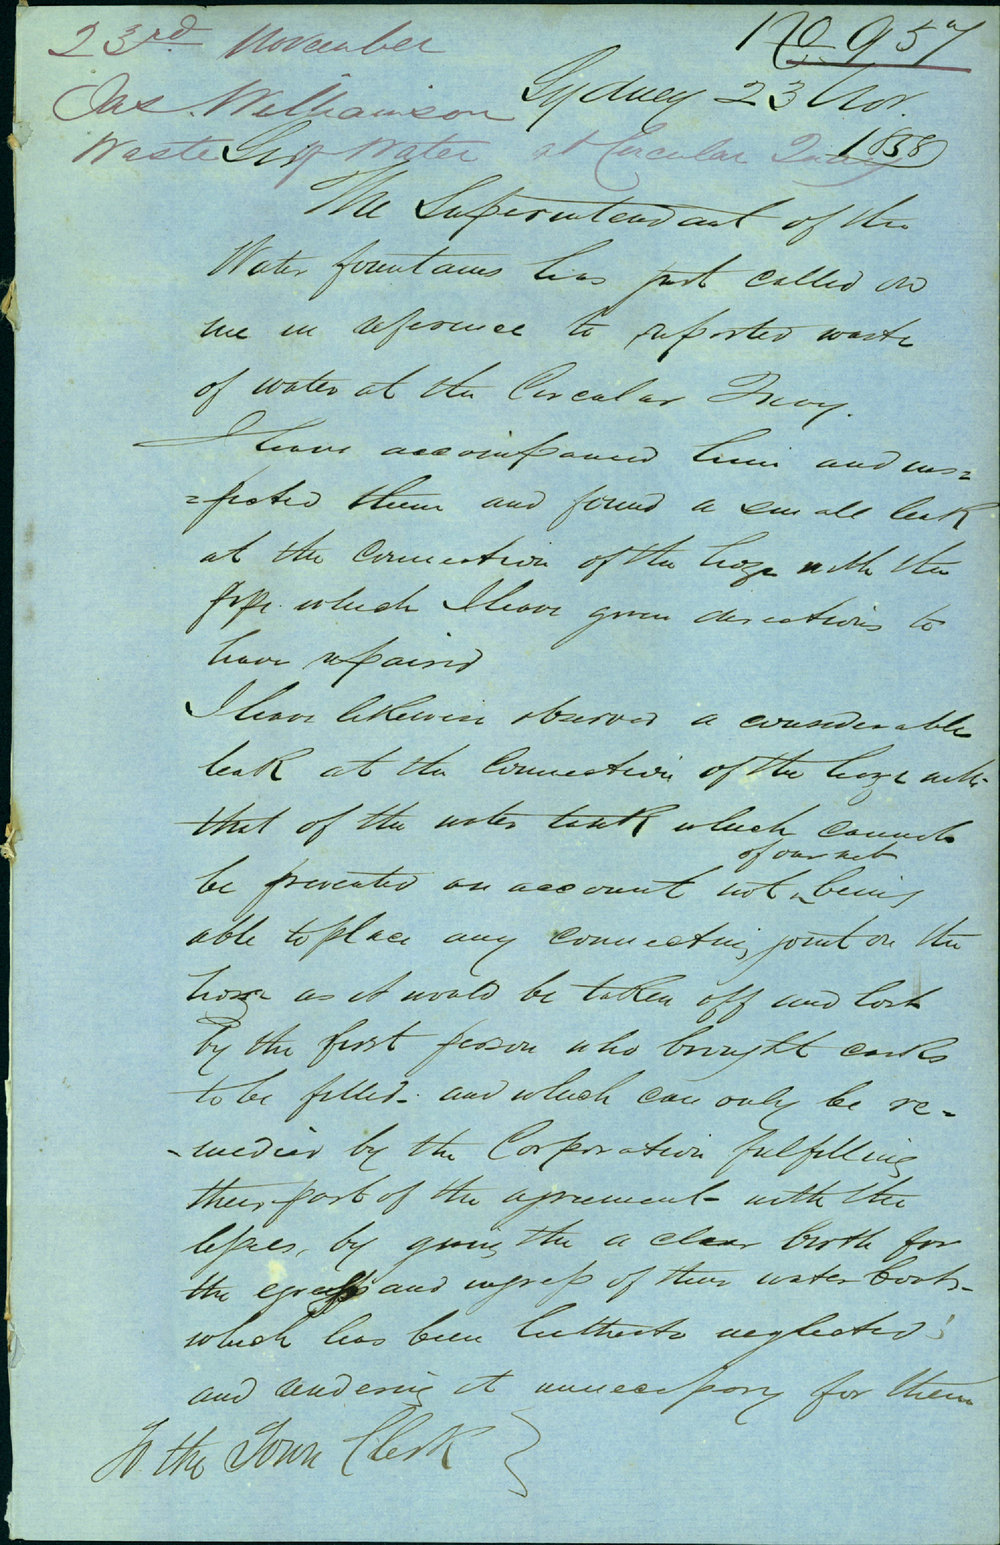 23rd November
No 957
Jas. Williamson
Sydney 23 Nov.
1858
Waste of Water at Circular Quay
The Superintendant of the
Water fountains has just called on
me in reference to reported waste
of water at the Circular Quay.
I have accompanied him and ins=
=pected them and found a small leak
at the connection of the hoze with the
pipe which I have given directions to
have repaired
I have likewise observed a considerable
leak at the connection of the hoze with
that of the water tank which cannot
of our not
be prevented on account not being
able to place any connecting joint on the
hoze as it would be taken off and lost
by the first person who brought casks
to be filled - and which can only be re-
-medied by the Corporation fulfilling
their part of the agreement - with the
lessees, by giving the a clear berth for
the egress and ingress of their water boats -
which has been hitherto neglected
and rendering it unnecessary for them
To the Town Clerk